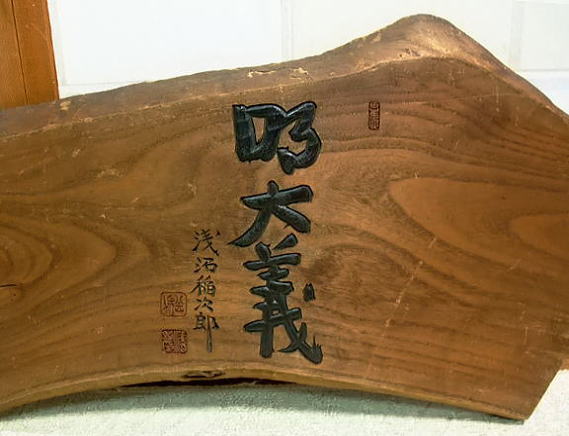 明大義
浅沼稲次郎